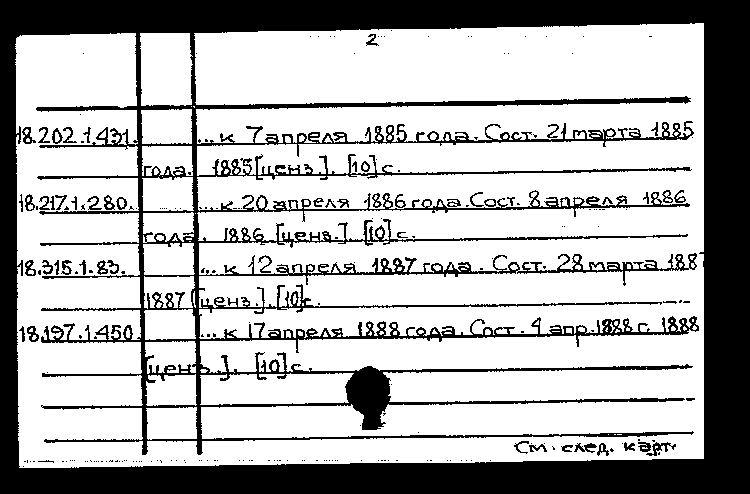 2
18.202.1.431. ... к 7 апреля 1885 года. Сост. 21 марта 1885
года. 1885 [ценз.]. [10] с.
18.217.1.280. ... к 20 апреля 1886 года. Сост. 8 апреля 1886
года. 1886 [ценз.]. [10] с.
18.315.1.83. ... к 12 апреля 1887 года. Сост. 28 марта 1887
1887 [ценз.]. [10] с.
18.197.1.450. ... к 17 апреля 1888 года. Сост. 4 апр. 1888 г. 1888
[ценз.]. [10] с.
См. след. карт.